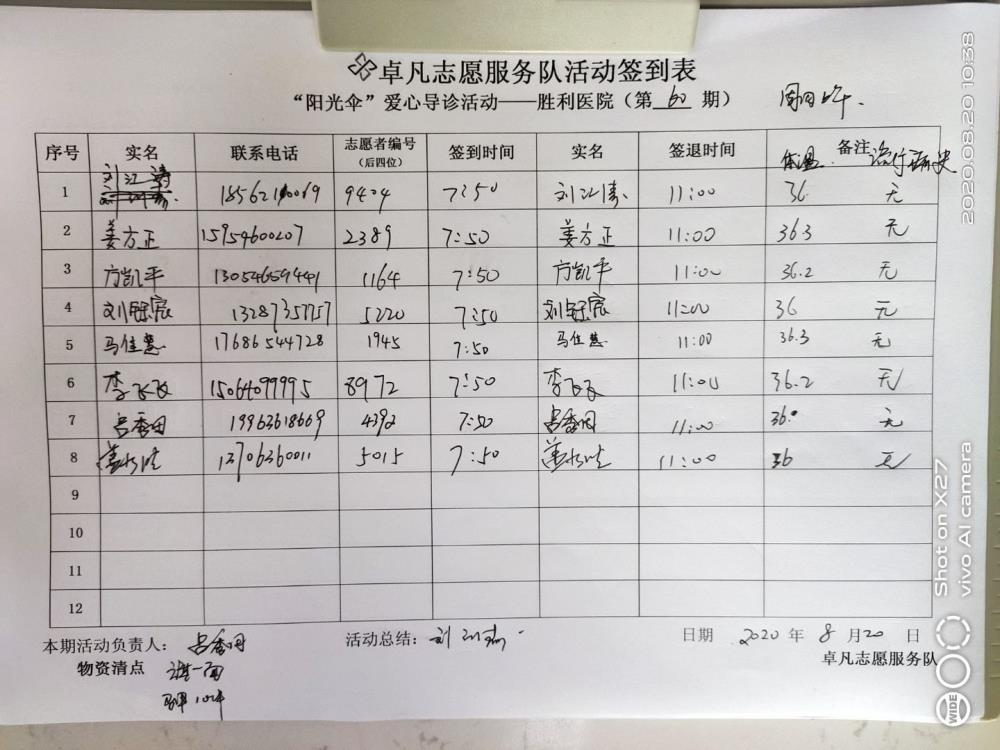 卓凡志愿服务队活动签到表
“阳光伞”爱心导诊活动——胜利医院（第 60 期）
序号 实名 联系电话 志愿者编号（后四位） 签到时间 实名 签退时间 体温 备注 流行病史
1 刘江涛 9404 7:50 刘江涛 11:00 36 无
2 姜方正 15954600207 2389 7:50 姜方正 11:00 36.3 无
3 方凯平 13054659441 1164 7:50 方凯平 11:00 36.2 无
4 13287357757 5220 7:50 11:00 36 无
5 马佳慧 17686544728 1945 7:50 马佳慧 11:00 36.3 无
6 李飞飞 15064099995 8972 7:50 李飞飞 11:00 36.2 无
7 吕香田 19963618669 4392 7:50 吕香田 11:00 36 无
8 13706360011 5015 7:50 11:00 36 无
9
10
11
12
本期活动负责人： 吕香田 活动总结： 日期 2020 年 8 月 20 日
物资清点
卓凡志愿服务队
2020.08.20 10:38
Shot on X27
vivo AI camera
WIDE